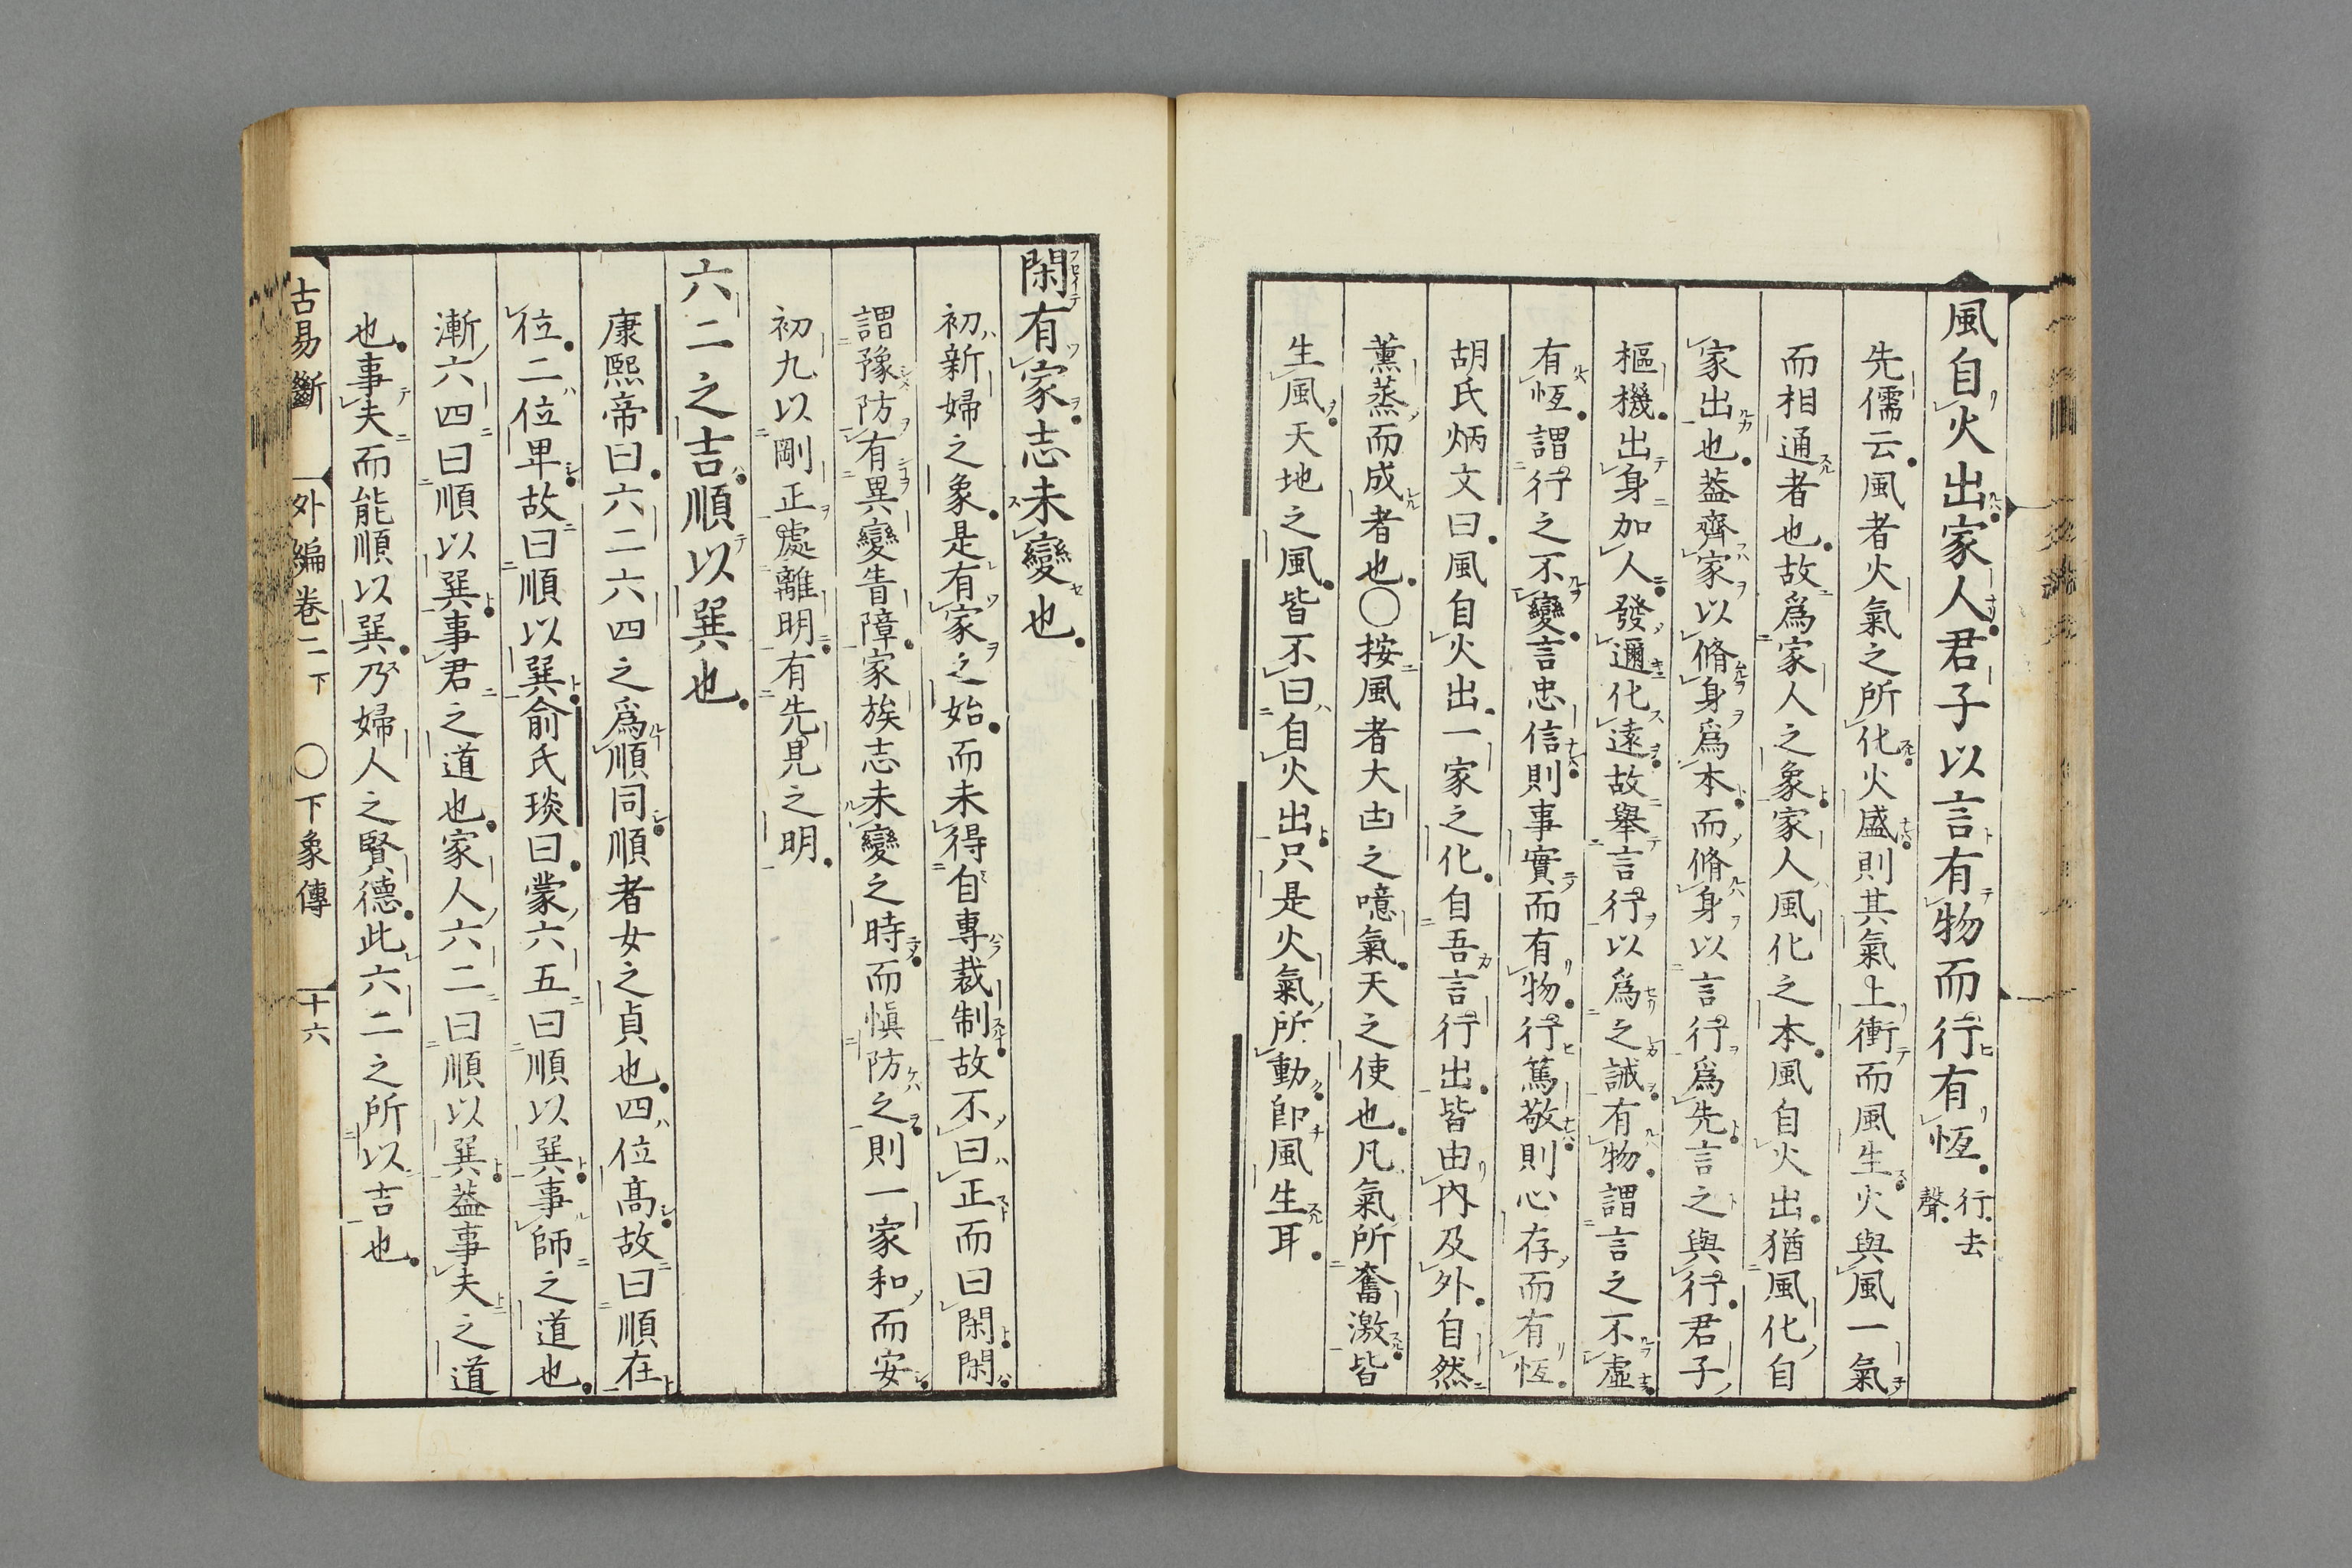 風自火出家人君子以言有物而行有恆行去聲
先儒云風者火氣之所化火盛則其氣上衝而風生火與風一氣
而相通者也故爲家人之象家人風化之本風自火出猶風化自
家出也葢齊家以脩身爲本而脩身以言行爲先言之與行君子
樞機出身加人發邇化遠故舉言行以爲之誡有物謂言之不虛
有恆謂行之不變言忠信則事實而有物行篤敬則心存而有恆
胡氏炳文曰風自火出一家之化自吾言行出皆由內及外自然
薰蒸而成者也〇按風者大凷之噫氣天之使也凡氣所奮激皆
生風天地之風皆不曰自火出只是火氣所動卽風生耳
閑有家志未變也
初新婦之象是有家之始而未得自專裁制故不曰正而曰閑閑
謂豫防有異變眚障家族志未變之時而愼防之則一家和而安
初九以剛正處離明有先見之明
六二之吉順以巽也
康熙帝曰六二六四之爲順同順者女之貞也四位高故曰順在
位二位卑故曰順以巽俞氏琰曰蒙六五曰順以巽事師之道也
漸六四曰順以巽事君之道也家人六二曰順以巽葢事夫之道
也事夫而能順以巽乃婦人之賢德此六二之所以吉也
古易斷 外編卷二下 〇下象傳 十六